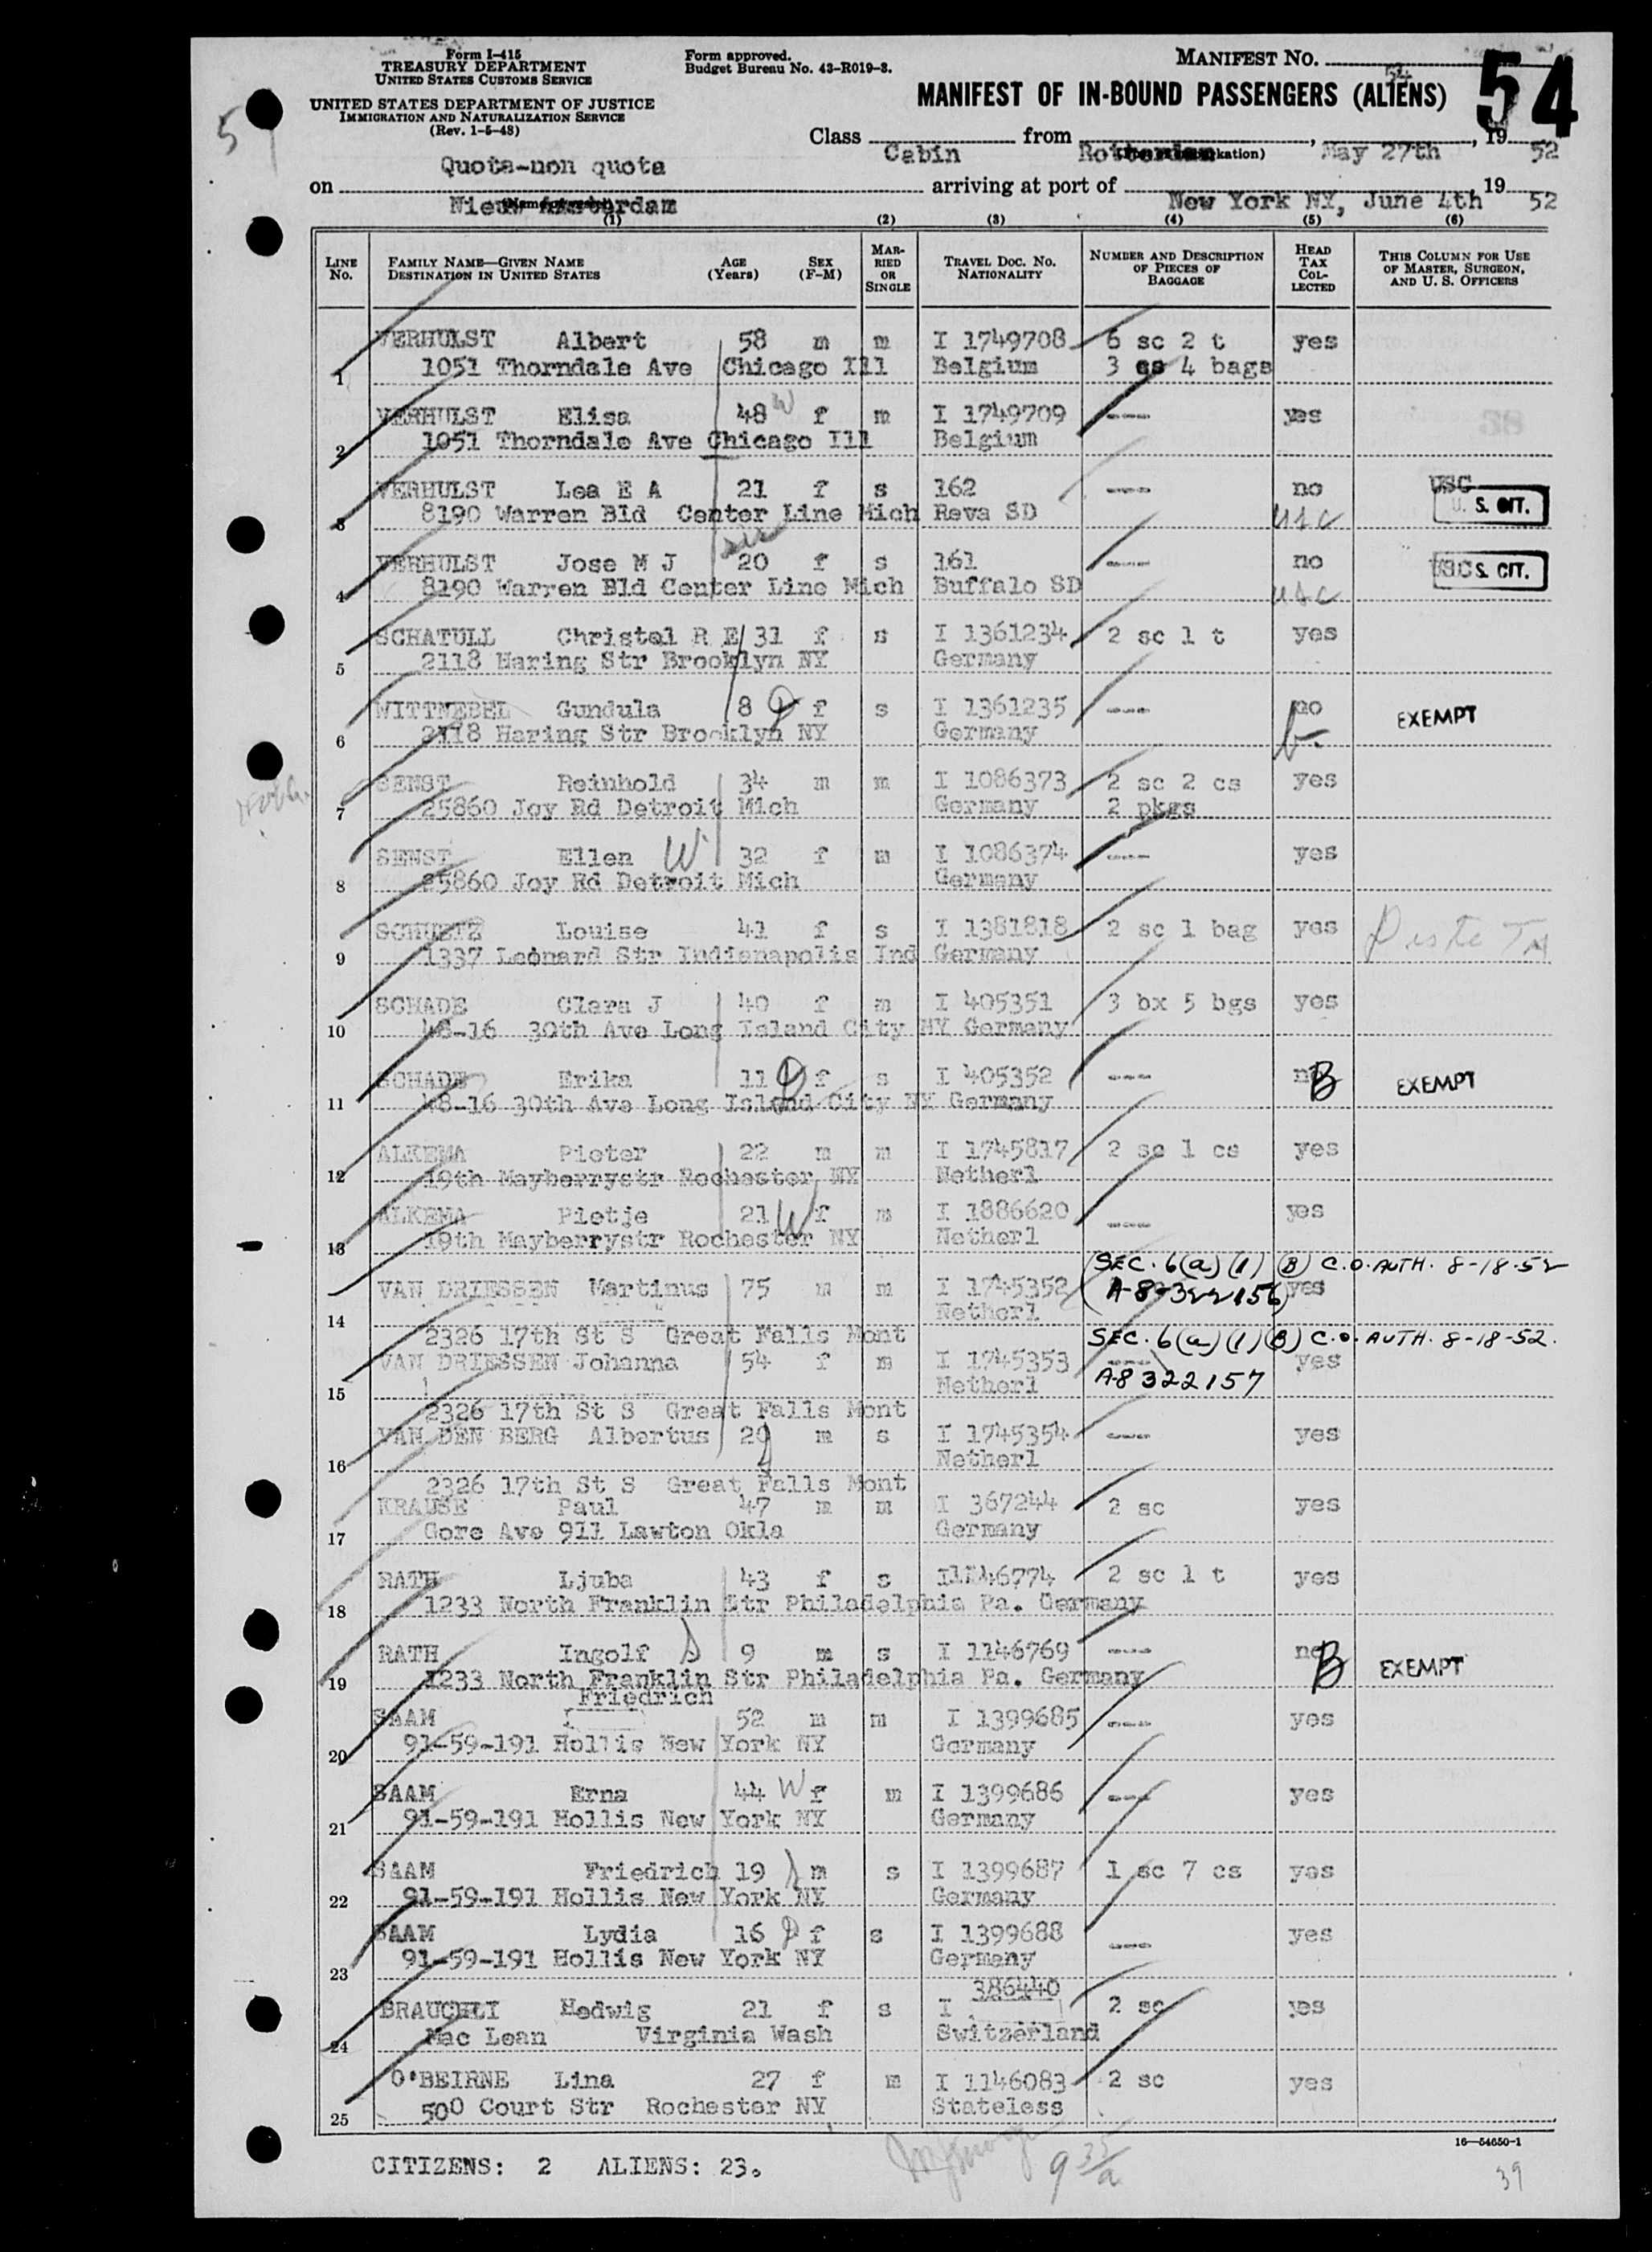 Form I-415
TREASURY DEPARTMENT
UNITED STATES CUSTOMS SERVICE
UNITED STATES DEPARTMENT OF JUSTICE
IMMIGRATION AND NATURALIZATION SERVICE
(Rev. 1-5-48)
Form approved.
Budget Bureau No. 43-R019-3.
MANIFEST NO.
54
MANIFEST OF IN-BOUND PASSENGERS (ALIENS)
54
Class Cabin from Rotterdam, May 27th, 19 52
Quota-non quota
on Nieuw Amsterdam arriving at port of New York NY, June 4th 19 52
(1) (2) (3) (4) (5) (6)
LINE No. FAMILY NAME—GIVEN NAME DESTINATION IN UNITED STATES AGE (Years) SEX (F-M) MARRIED OR SINGLE TRAVEL DOC. NO. NATIONALITY NUMBER AND DESCRIPTION OF PIECES OF BAGGAGE HEAD TAX COLLECTED THIS COLUMN FOR USE OF MASTER, SURGEON, AND U. S. OFFICERS
VERHULST Albert 58 m m I 1749708 6 sc 2 t yes
1 1051 Thorndale Ave Chicago Ill Belgium 3 cs 4 bags
VERHULST Elisa 48 W f m I 1749709 --- yes
2 1051 Thorndale Ave Chicago Ill Belgium
VERHULST Lea E A 21 f s 162 --- no USC
3 8190 Warren Bld Center Line Mich Reva SD usc U. S. CIT.
sis
VERHULST Jose M J 20 f s 161 --- no USC S. CIT.
4 8190 Warren Bld Center Line Mich Buffalo SD usc
SCHATULL Christel R E 31 f s I 1361234 2 sc 1 t yes
5 2118 Haring Str Brooklyn NY Germany
WITTNEBEL Gundula 8 D f s I 1361235 --- no EXEMPT
6 2118 Haring Str Brooklyn NY Germany
SENST Reinhold 34 m m I 1086373 2 sc 2 cs yes
7 25860 Joy Rd Detroit Mich Germany 2 pkgs
SENST Ellen W 32 f m I 1086374 --- yes
8 25860 Joy Rd Detroit Mich Germany
SCHULTZ Louise 41 f s I 1381818 2 sc 1 bag yes
9 1337 Leonard Str Indianapolis Ind Germany
SCHADE Clara J 40 f m I 405351 3 bx 5 bgs yes
10 48-16 30th Ave Long Island City NY Germany
SCHADE Erika 11 D f s I 405352 --- no B EXEMPT
11 48-16 30th Ave Long Island City NY Germany
ALKEMA Pieter 22 m m I 1745817 2 sc 1 cs yes
12 19th Mayberrystr Rochester NY Netherl
ALKEMA Pietje 21 W f m I 1886620 --- yes
13 19th Mayberrystr Rochester NY Netherl
SEC. 6(a)(1)(B) C.O. AUTH. 8-18-52
VAN DRIESSEN Martinus 75 m m I 1745352 A-8322156 yes
14 Netherl
2326 17th St S Great Falls Mont SEC. 6(a)(1)(B) C.O. AUTH. 8-18-52.
VAN DRIESSEN Johanna 54 f m I 1745353 --- yes
15 Netherl A-8322157
2326 17th St S Great Falls Mont
VAN DEN BERG Albertus 20 m s I 1745354 --- yes
16 Netherl
2326 17th St S Great Falls Mont
KRAUSE Paul 47 m m I 367244 2 sc yes
17 Gore Ave 911 Lawton Okla Germany
RATH Ljuba 43 f s I 1146774 2 sc 1 t yes
18 1233 North Franklin Str Philadelphia Pa. Germany
RATH Ingolf S 9 m s I 1146769 --- no B EXEMPT
19 1233 North Franklin Str Philadelphia Pa. Germany
Friedrich
SAAM 52 m m I 1399685 --- yes
20 91-59-191 Hollis New York NY Germany
SAAM Erna 44 W f m I 1399686 --- yes
21 91-59-191 Hollis New York NY Germany
SAAM Friedrich 19 S m s I 1399687 1 sc 7 cs yes
22 91-59-191 Hollis New York NY Germany
SAAM Lydia 16 D f s I 1399688 --- yes
23 91-59-191 Hollis New York NY Germany
386440
BRAUCHLI Hedwig 21 f s I 2 sc yes
24 Mac Lean Virginia Wash Switzerland
O'BEIRNE Lina 27 f m I 1146083 2 sc yes
25 500 Court Str Rochester NY Stateless
16—54650-1
CITIZENS: 2 ALIENS: 23.
9 35/a
39